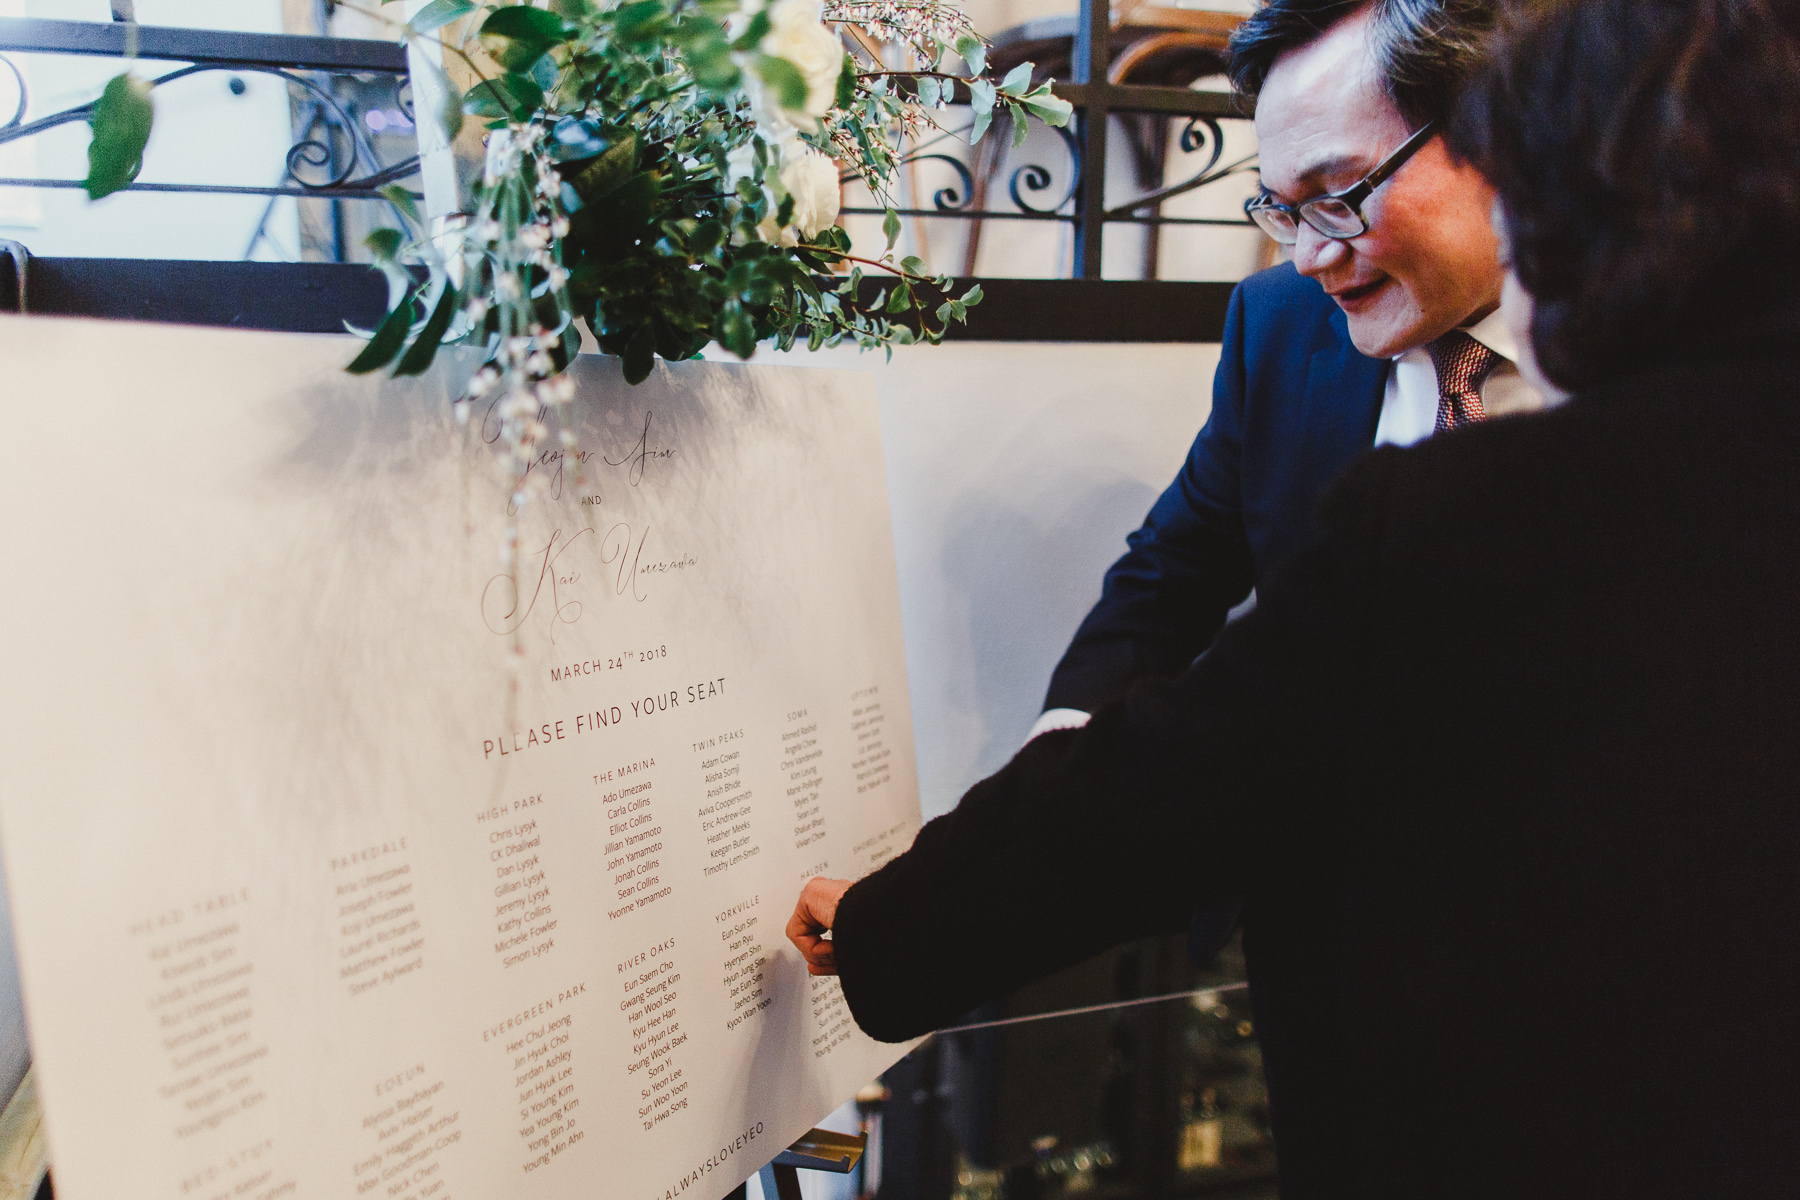 Yeojin Sim
AND
Kai Umezawa
MARCH 24TH 2018
PLEASE FIND YOUR SEAT
HEAD TABLE
Kai Umezawa
Sim
Linda Umezawa
Rui Umezawa
Setsuko Baba
Sunhee Sim
Tamae Umezawa
Yeojin Sim
Youngrun Kim
BED-STUY
PARKDALE
Aria Umezawa
Joseph Fowler
Koji Umezawa
Laurel Richards
Matthew Fowler
Steve Aylward
EOEUN
Alyssa Baybayan
Aviv Hanser
Emily Haggett Arthur
Max Goodman-Coop
Nick Chen
Yuan
HIGH PARK
Chris Lysyk
CK Dhaliwal
Dan Lysyk
Gillian Lysyk
Jeremy Lysyk
Kathy Collins
Michele Fowler
Simon Lysyk
EVERGREEN PARK
Hee Chul Jeong
Jin Hyuk Choi
Jordan Ashley
Jun Hyuk Lee
Si Young Kim
Yea Young Kim
Yong Bin Jo
Young Min Ahn
THE MARINA
Ado Umezawa
Carla Collins
Elliot Collins
Jillian Yamamoto
John Yamamoto
Jonah Collins
Sean Collins
Yvonne Yamamoto
RIVER OAKS
Eun Saem Cho
Gwang Seung Kim
Han Wool Seo
Kyu Hee Han
Kyu Hyun Lee
Seung Wook Baek
Sora Yi
Su Yeon Lee
Sun Woo Yoon
Tai Hwa Song
TWIN PEAKS
Adam Cowan
Alisha Somji
Anish Bhide
Aviva Coopersmith
Eric Andrew-Gee
Heather Meeks
Keegan Butler
Timothy Lem-Smith
YORKVILLE
Eun Sun Sim
Han Ryu
Hyeryen Shin
Hyun Jung Sim
Jae Eun Sim
Jaeho Sim
Kyoo Wan Yoon
SOMA
Ahmed Rashid
Angela Chow
Chris Vandevelde
Kim Leung
Marie Pollinger
Myles Tan
Sean Lee
Shalue Bharj
Vivian Chow
HALDEN
Sun Yi Ha
Young Joon Ryu
Young Mi Song
UPTOWN
ALWAYSLOVEYEO